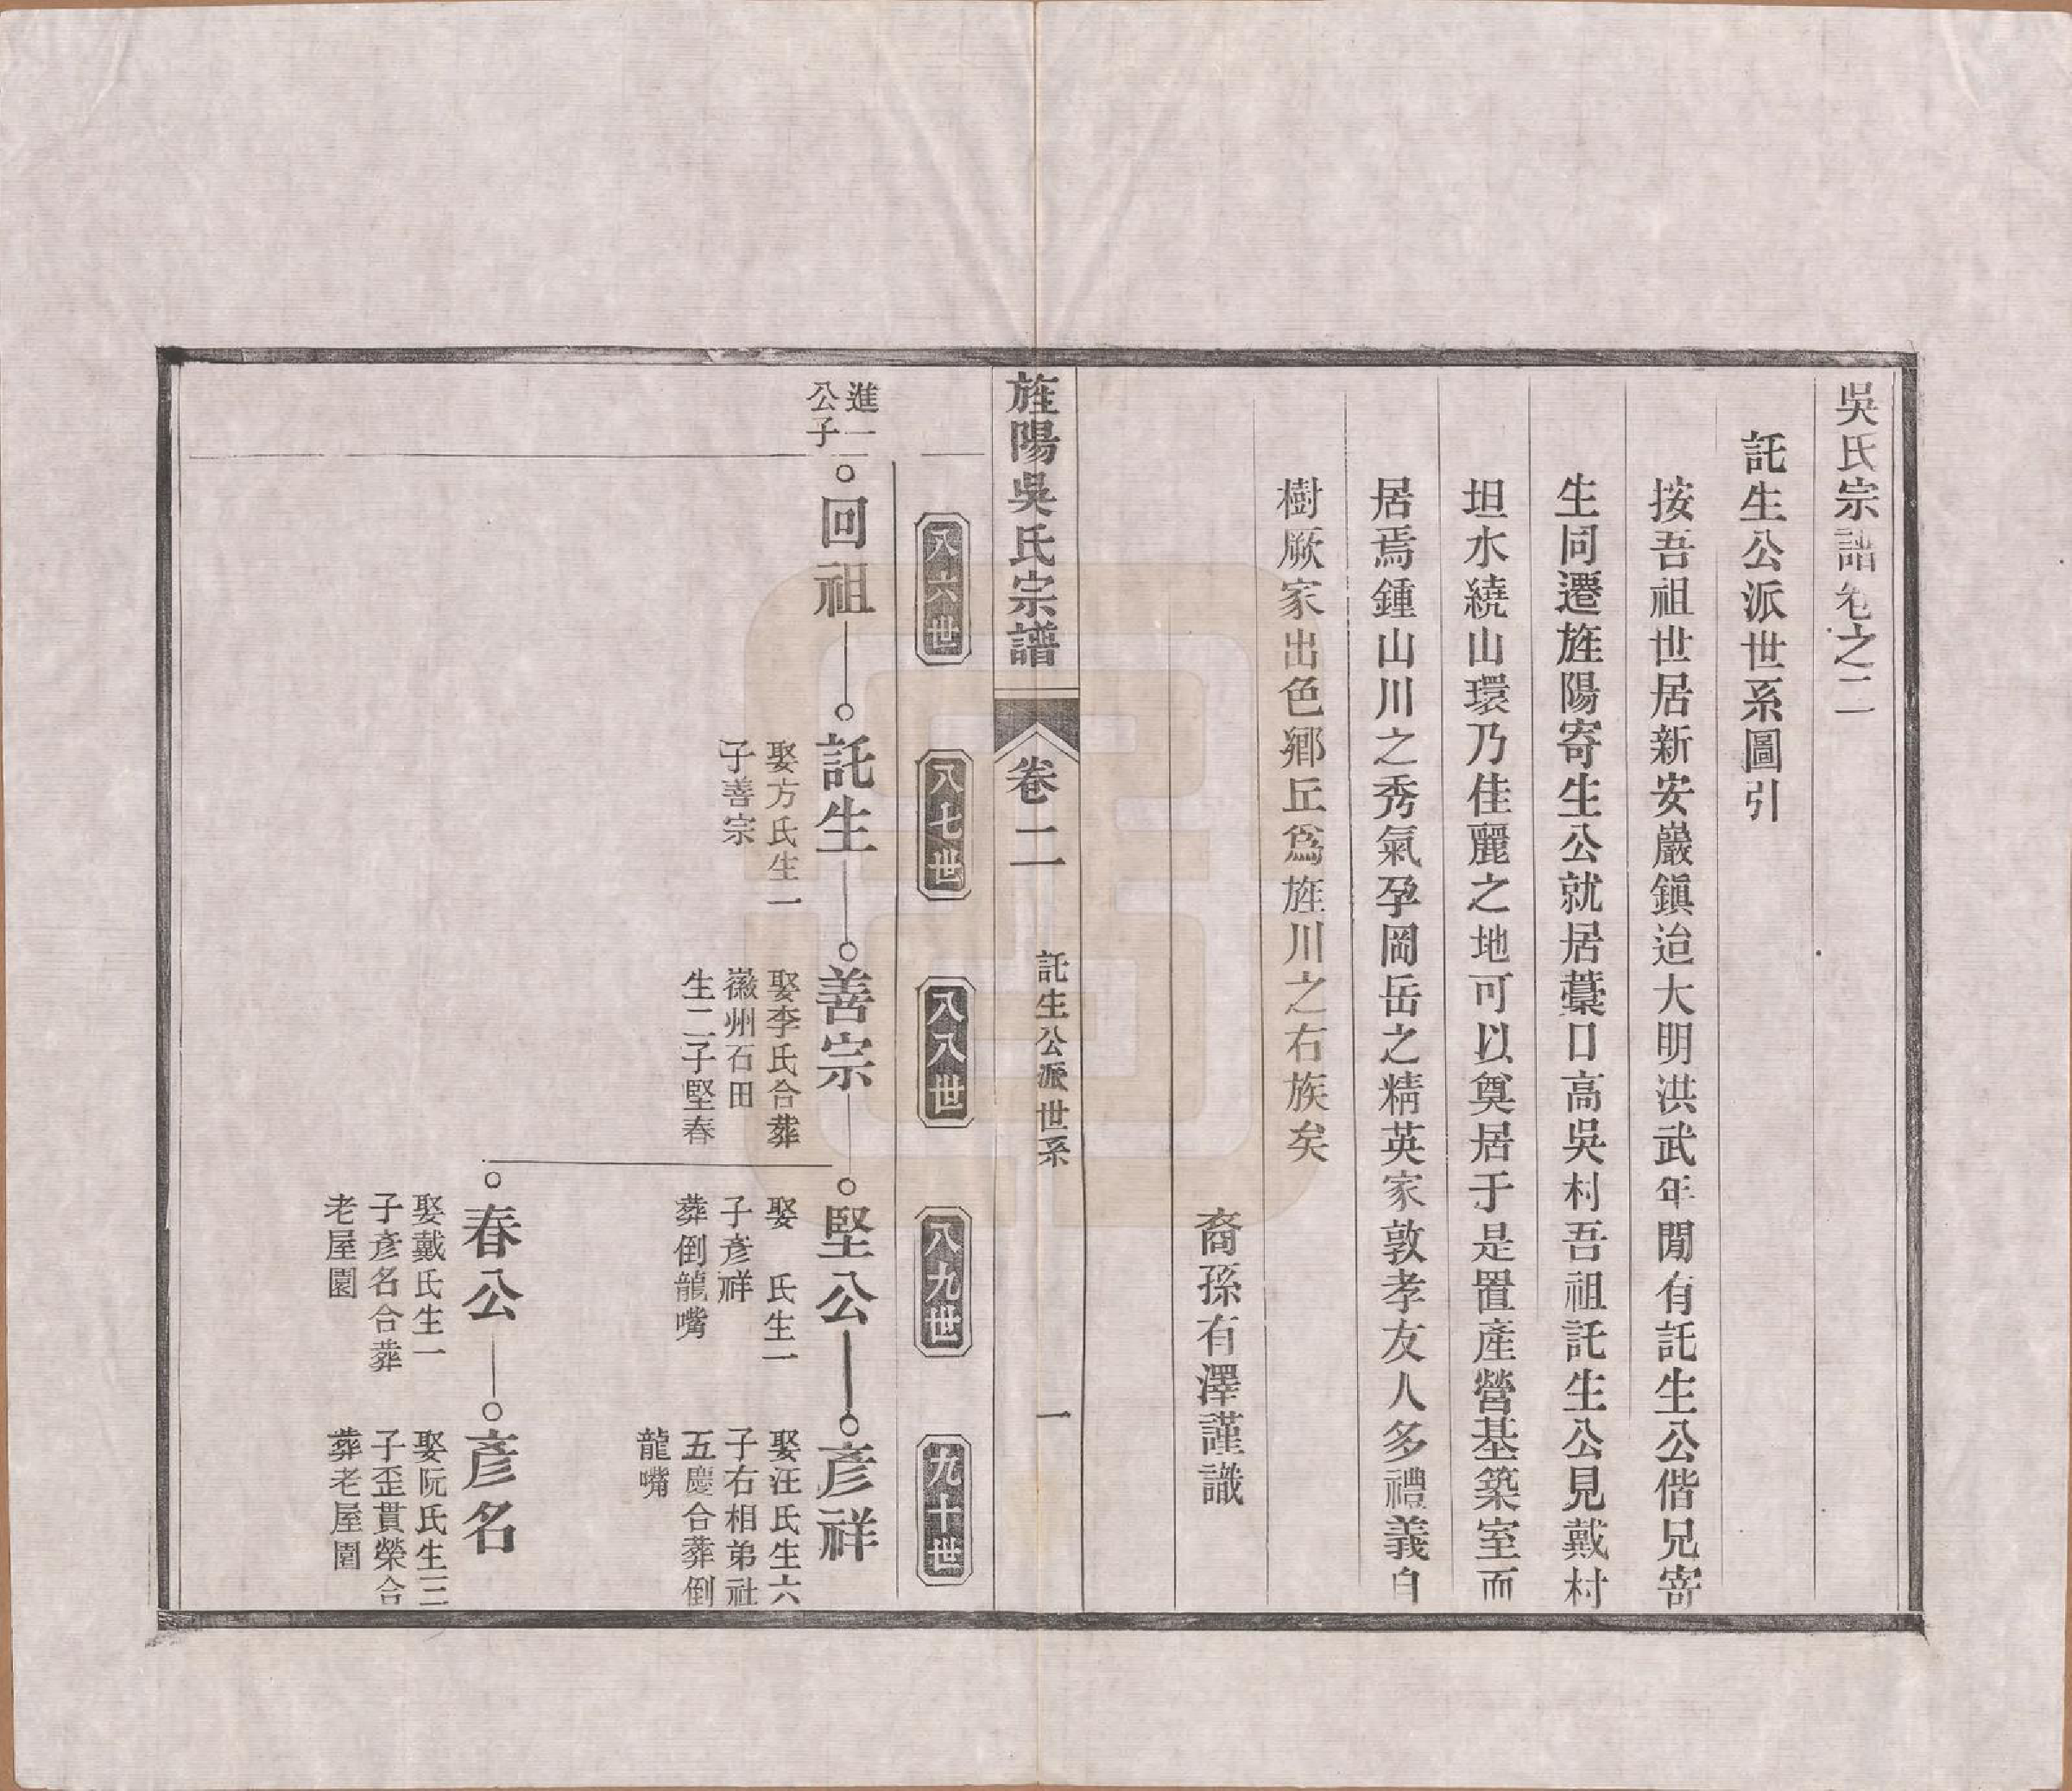 吳氏宗譜卷之二
託生公派世系圖引
按吾祖世居新安巖鎮迨大明洪武年閒有託生公偕兄寄
生同遷旌陽寄生公就居藁口高吳村吾祖託生公見戴村
坦水繞山環乃佳麗之地可以奠居于是置產營基築室而
居焉鍾山川之秀氣孕岡岳之精英家敦孝友人多禮義自
樹厥家出色鄉丘爲旌川之右族矣
裔孫有澤謹識
旌陽吳氏宗譜
卷二
託生公派世系
一
八六世
八七世
八八世
八九世
九十世
進一
公子
回祖
託生
娶方氏生一
子善宗
善宗
娶李氏合葬
徽州石田
生二子堅春
堅公
娶 氏生一
子彥祥
葬倒龍嘴
彥祥
娶汪氏生六
子右相弟社
五慶合葬倒
龍嘴
春公
娶戴氏生一
子彥名合葬
老屋園
彥名
娶阮氏生三
子歪貫榮合
葬老屋園